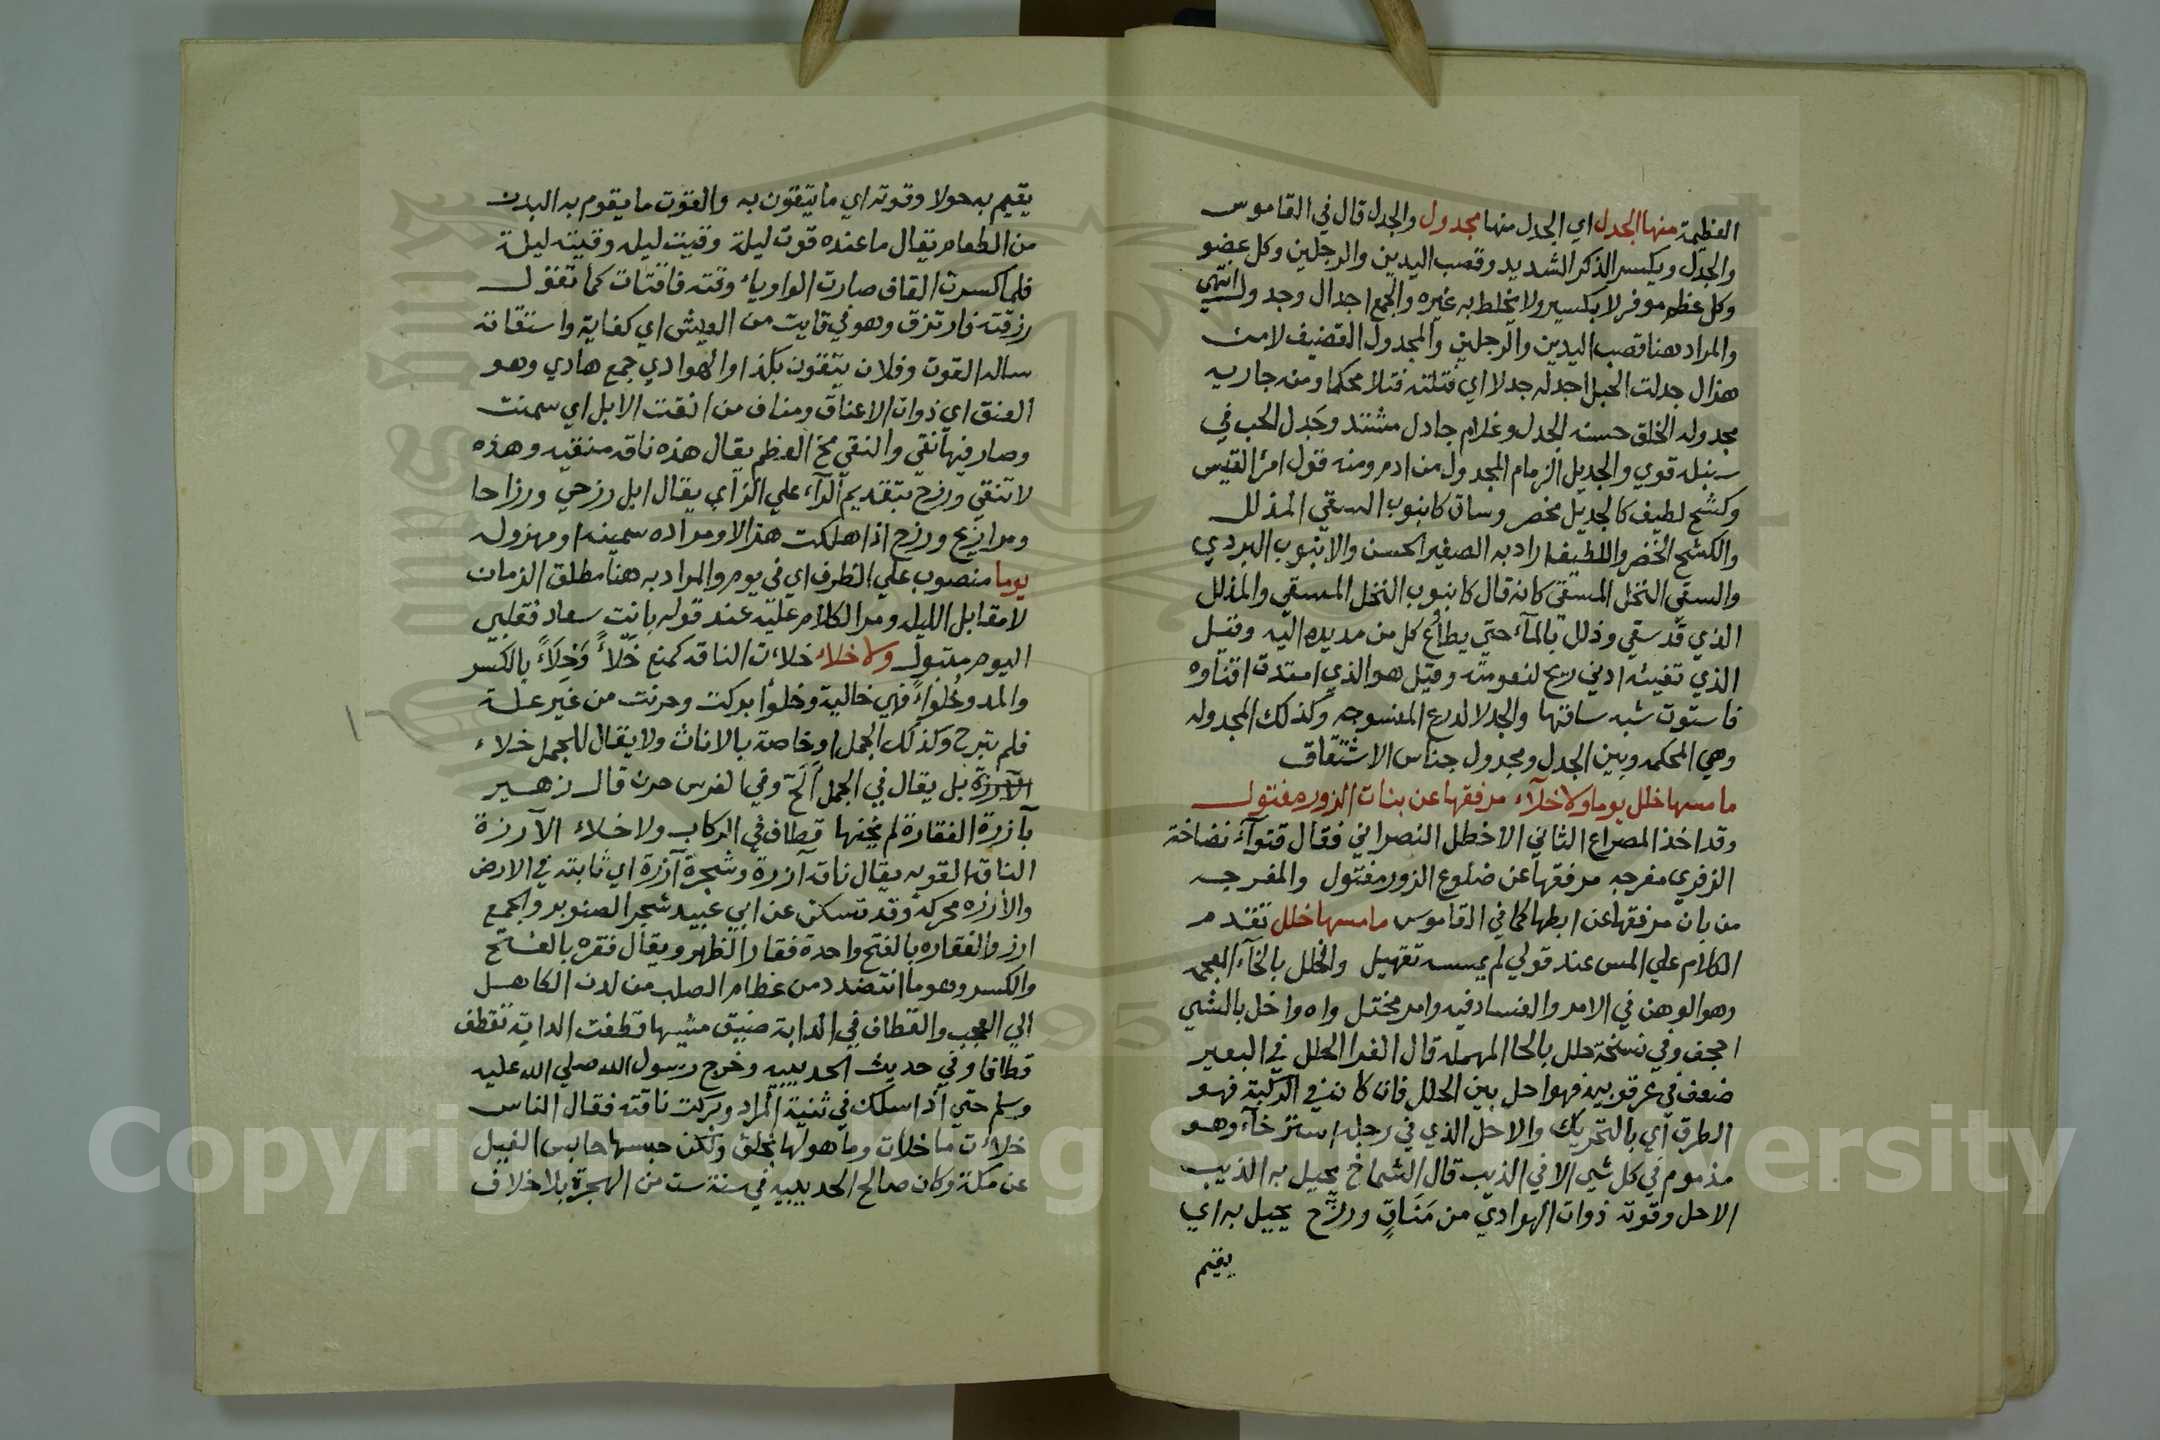 العظيمة منها الجدل اي الجدل منها مجدول والجدل قال في القاموس
والجدل ويكسر الذكر الشديد وقصب اليدين والرجلين وكل عضو
وكل عظم موفر لا يكسر ولا يخلط به غيره والجمع اجدال وجدول انتهي
والمراد هنا قصب اليدين والرجلين والمجدول القضيف لا من
هذال جدلت الحبل اجدله جدلا اي فتلته فتلا محكما ومنه جاريه
مجدوله الخلق حسنه الجدل وغلام جادل مشتد وجدل الحب في
سنبله قوي والجديل الزمام المجدول من ادم ومنه قول امرأ القيس
وكشح لطيف كالجديل مخصر وساق كانبوب السقي المذلل
والكشح الخضر واللطيف اراد به الصغير الحسن والانبوب البردي
والسقي النخل المسقي كانه قال كانبوب النخل المسقي والمذلل
الذي قد سقي وذلل بالمآء حتي يطاع كل من مد يده اليه وقيل
الذي تفيئه ادني ريح لنعومته وقيل هو الذي امتدت اقناوه
فاستوت شبه ساقها والجدلا الدرع المنسوجه وكذلك المجدوله
وهي المحكمه وبين الجدل ومجدول جناس الاشتقاق
ما مسها خلل يوما ولا خلآء مرفقها عن بنات الزور مفتول
وقد اخذ المصراع الثاني الاخطل النصراني فقال قنوآء نضاخة
الذفري مفرجه مرفقها عن ضلوع الزور مفتول والمفرجه
من بان مرفقها عن ابطها كما في القاموس ما مسها خلل تقدم
الكلام علي المس عند قولي لم يمسسه تقهيل والخلل بالخآء المعجمه
وهو الوهن في الامر والفساد فيه وامر مختل واه واخل بالشي
اجحف وفي نسخة حلل بالحا المهمله قال الفرا الحلل في البعير
ضعف في عرقوبيه فهو احل بين الحلل فان كان في الركبة فهو
الطرق اي بالتحريك والاحل الذي في رجله استرخآء وهو
مذموم في كل شي الا في الذيب قال الشماخ يحيل به الذيب
الاحل وقوته ذوات الهوادي من مناق ورزح يحيل به اي
يقيم
يقيم به حولا وقوته اي ما يتقوت به والقوت ما يقوم به البدن
من الطعام يقال ما عنده قوت ليلة وقيت ليله وقيته ليلة
فلما كسرت القاف صارت الواو ياء وقته فاقتات كما تقول
رزقته فارتزق وهو في قايت من العيش اي كفاية واستقاته
ساله القوت وفلان يتقوت بكذا والهوادي جمع هادي وهو
العنق اي ذوات الاعناق ومناق من انقت الابل اي سمنت
وصار فيها نقي والنقي مخ العظم يقال هذه ناقه منقيه وهذه
لا تنقي ورزح بتقديم الرآء علي الزاي يقال ابل رزحي ورزاحا
ومرازيح ورزح اذا هلكت هزالا ومراده سمينه او مهزوله
يوما منصوب علي الظرف اي في يوم والمراد به هنا مطلق الزمان
لا مقابل الليل ومر الكلام عليه عند قوله بانت سعاد فقلبي
اليوم متبول ولا خلاء خلات الناقه كمنع خلأ وخلاء بالكسر
والمد وخلواء فهي خالية وخلوا بركت وحرنت من غير علة
فلم تبرح وكذلك الجمل او خاصة بالاناث ولا يقال للجمل خلاء
الآرزة بل يقال في الجمل ألح وفي الفرس حرن قال زهير
بآرزة الفقارة لم يخنها قطاف في الركاب ولا خلاء الآرزة
الناقة القويه يقال ناقه آرزة وشجرة آرزة اي ثابته في الارض
والأرزه محركه وقد تسكن عن ابي عبيد شجر الصنوبر والجمع
ارز والفقاره بالفتح واحدة فقار الظهر ويقال فقره بالفتح
والكسر وهو ما انتضد من عظام الصلب من لدن الكاهل
الي العجب والقطاف في الدابة ضيق مشيها قطفت الدابة تقطف
قطافا وفي حديث الحديبيه وخرج رسول الله صلي الله عليه
وسلم حتي اذا سلك في ثنية المراد وبركت ناقته فقال الناس
خلات ما خلات وما هو لها بخلق ولكن حبسها حابس الفيل
عن مكة وكان صالح الحديبيه في سنة ست من الهجرة بلا خلاف
Copyright © King Saud University